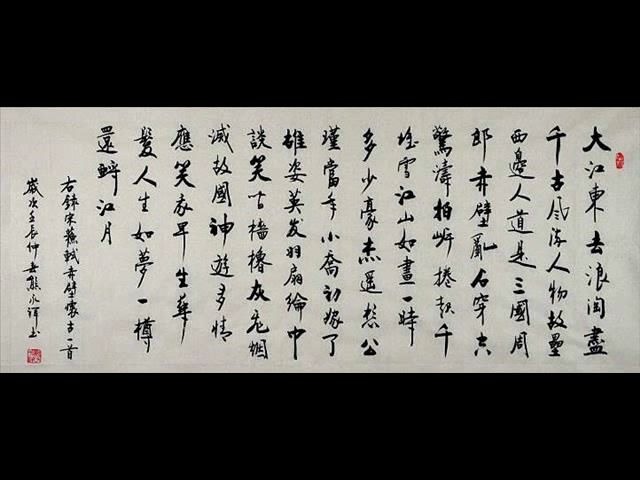 大江東去浪淘盡
千古风流人物故壘
西邊人道是三國周
郎赤壁亂石穿空
驚濤拍岸捲起千
堆雪江山如畫一時
多少豪杰遥想公
瑾當年小喬初嫁了
雄姿英发羽扇綸巾
談笑间檣櫓灰飛烟
滅故國神遊多情
應笑我早生華
髮人生如夢一樽
還酹江月
右錄宋蘇軾赤壁懷古一首
歲次壬辰仲熊永书